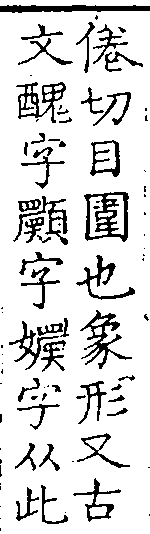 倦切目圍也象形又古
文醜字䫥字㜵字从此